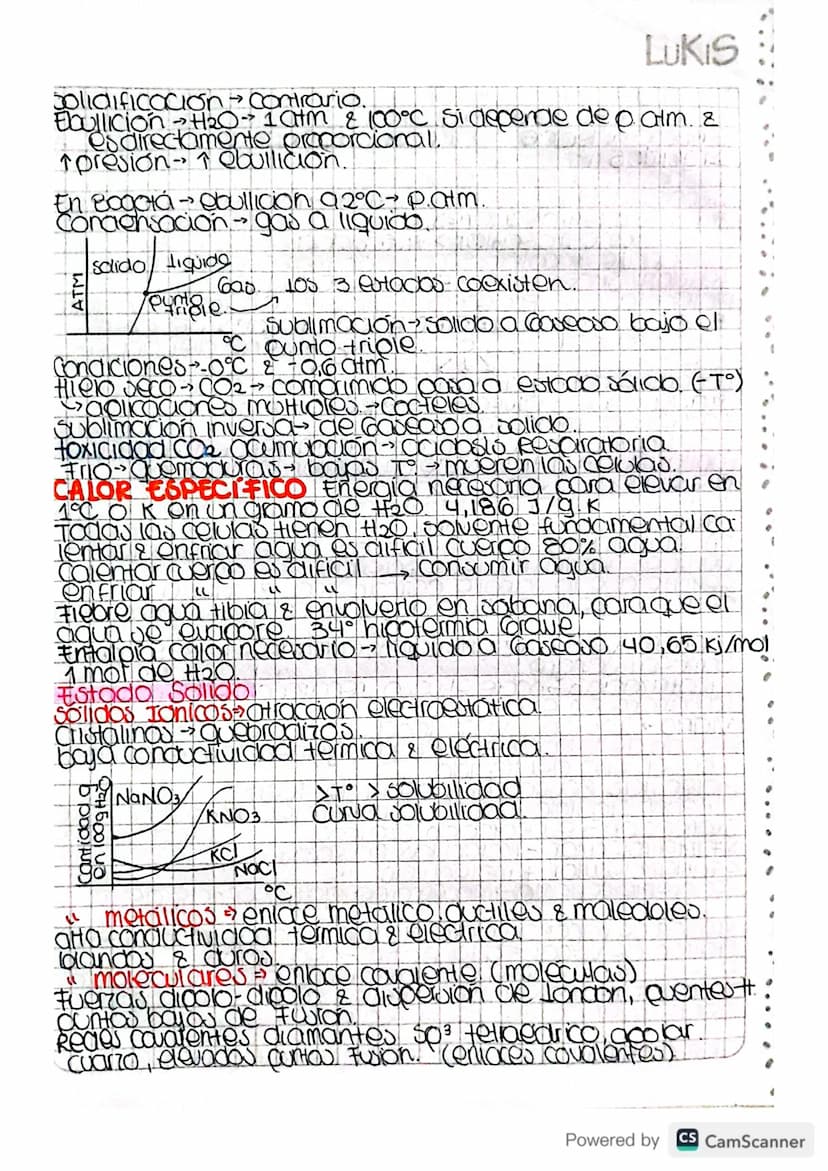 LUKIS
Solidificación → contrario.
Ebullición → H2O → 1 atm & 100°C. Si depende de p. atm. &
es directamente proporcional.
↑ presión → ↑ ebullición.
En Bogotá → ebullición 92°C → p. atm.
Condensación → gas a líquido.
solido líquido
ATM
Gas
punto triple
los 3 estados coexisten.
Sublimación → solido a Gaseoso bajo el
°C
punto triple.
Condiciones → -0°C & -0,6 atm.
Hielo seco → CO2 → comprimido pasa a estado sólido. (-T°)
↳ aplicaciones multiples → Cocteles
Sublimación inversa → de Gaseoso a solido.
toxicidad CO2 acumulación → acidosis respiratoria
Frio → quemaduras → bajas T° → mueren las celulas.
CALOR ESPECÍFICO Energía necesaria para elevar en
1°C o K en un gramo de H2O 4,186 J/g.K
Todas las celulas tienen H2O, solvente fundamental ca
lentar & enfriar agua es dificil cuerpo 80% agua.
Calentar cuerpo es dificil → consumir agua.
enfriar " " "
Fiebre agua tibia & envolverlo en sabana, para que el
agua se evapore 34° hipotermia Grave
Entalpia calor necesario → líquido a Gaseoso 40,65 kj/mol
1 mol de H2O.
Estado Solido
Sólidos Ionicos → atracción electroestática.
Cristalinos → quebradizos.
baja conductividad termica & eléctrica.
Cantidad g
en 100g H2O
NaNO3
>T° > solubilidad
KNO3
curva solubilidad.
KCl
NaCl
°C
" metálicos → enlace metalico. ductiles & maleables.
alta conductividad termica & electrica
blandos & duros.
" moleculares → enlace covalente (moléculas)
Fuerzas dipolo-dipolo & dispersión de London, puentes H.
puntos bajos de Fusión.
Redes covalentes diamantes sp³ tetraedrico, apolar.
cuarzo, elevados puntos Fusion. (enlaces covalentes)
Powered by CS CamScanner